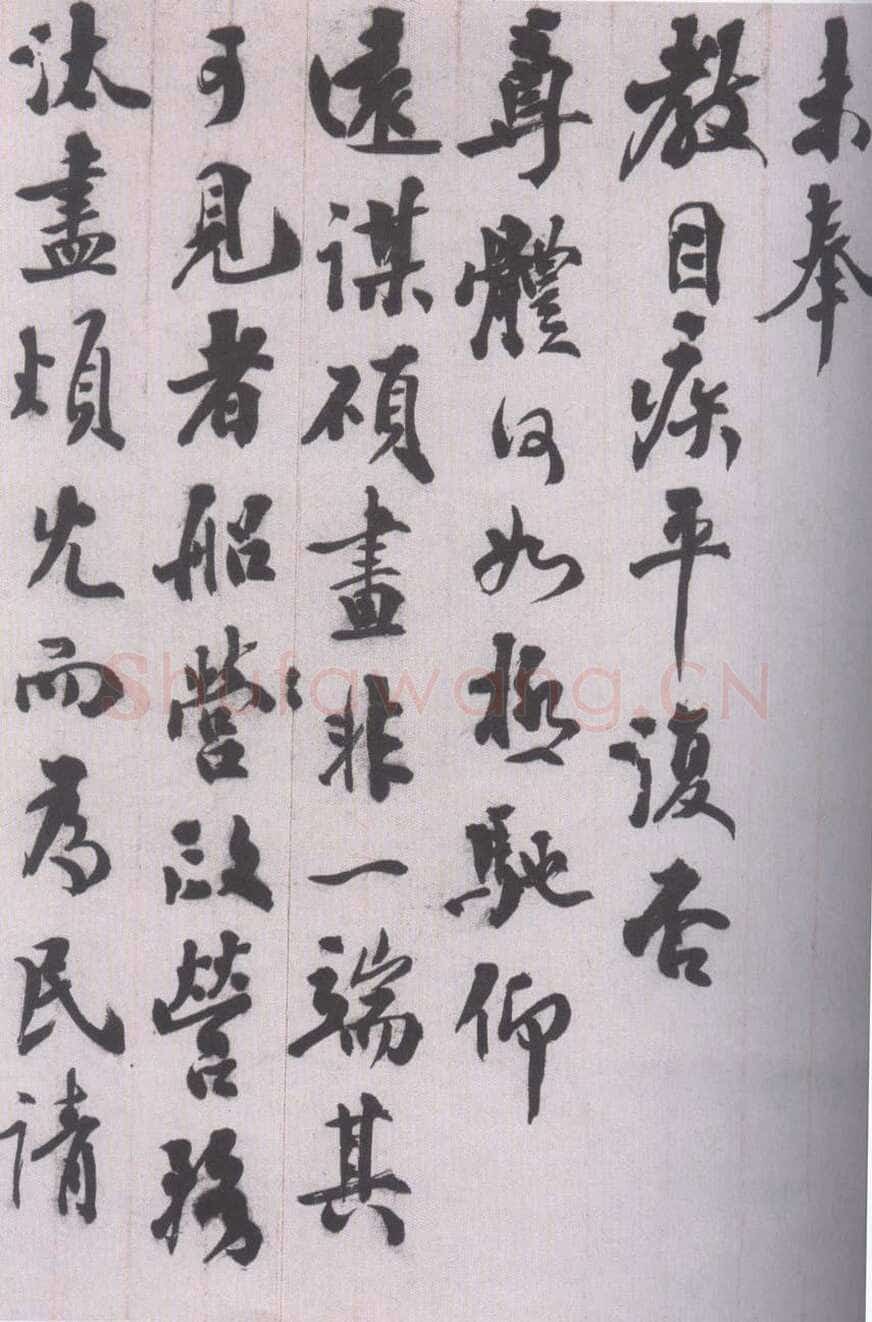 未奉
教目疾平復否
尊體何如極馳仰
遠謀碩畫非一端其
可見者船營政營務
汰盡煩冗而為民請
Shufawang.CN